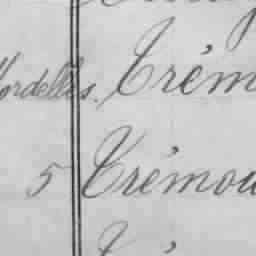 Mordelles. Trém
5 Trémou